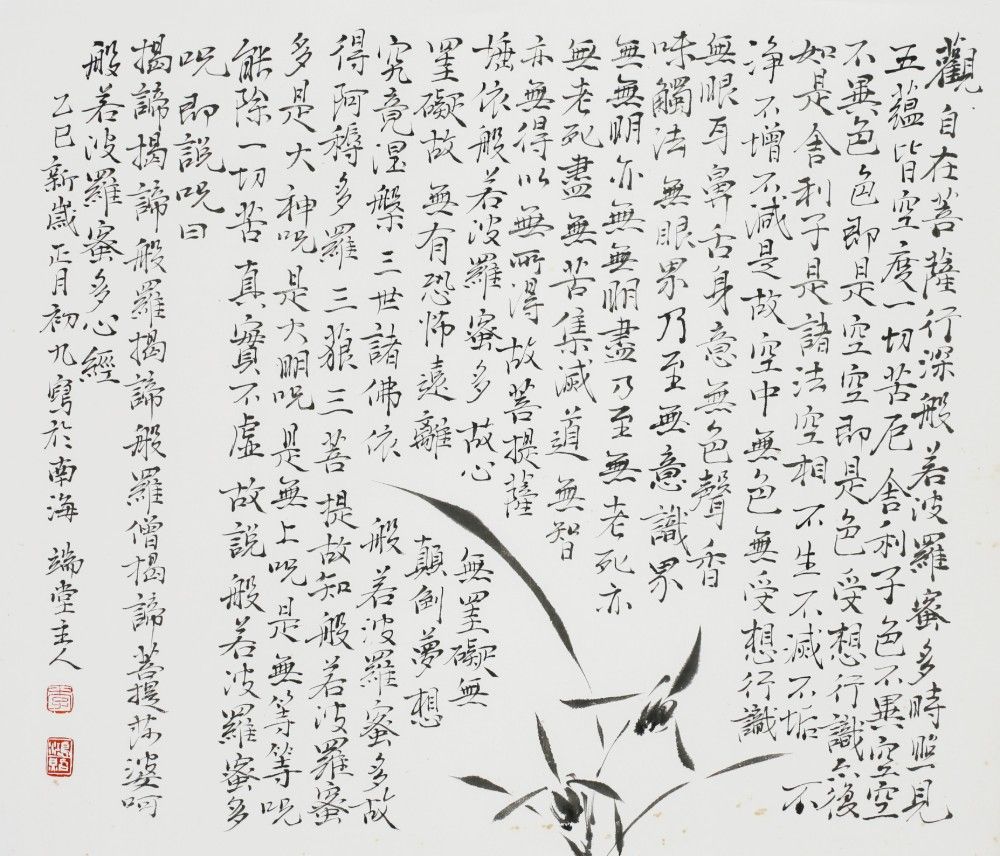 觀自在菩薩行深般若波羅蜜多時照見
五蘊皆空度一切苦厄舍利子色不異空空
不異色色即是空空即是色受想行識亦復
如是舍利子是諸法空相不生不滅不垢不
淨不增不減是故空中無色無受想行識
無眼耳鼻舌身意無色聲香
味觸法無眼界乃至無意識界
無無明亦無無明盡乃至無老死亦
無老死盡無苦集滅道無智
亦無得以無所得故菩提薩
埵依般若波羅蜜多故心 無罣礙無
罣礙故無有恐怖遠離 顛倒夢想
究竟涅槃三世諸佛依 般若波羅蜜多故
得阿耨多羅三藐三菩提故知般若波羅蜜
多是大神呪是大明呪是無上呪是無等等呪
能除一切苦真實不虛故說般若波羅蜜多
呪即說呪曰
揭諦揭諦般羅揭諦般羅僧揭諦菩提莎婆呵
般若波羅蜜多心經
乙巳新歲正月初九寫於南海 端堂主人